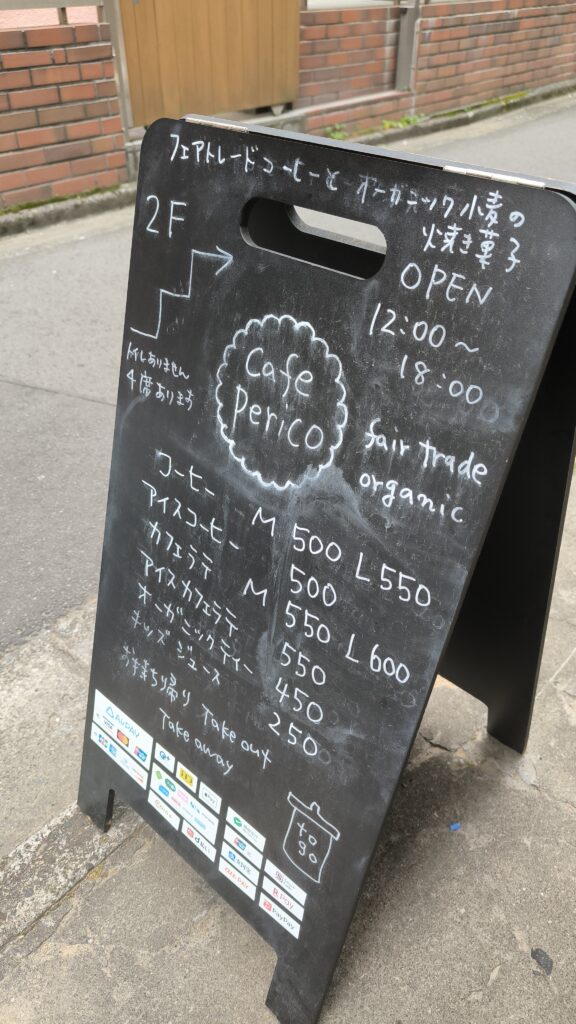 フェアトレードコーヒーと オーガニック小麦の
焼き菓子
2F
OPEN
12:00〜
18:00
トイレありません
4席あります
Cafe
Perico
fair trade
organic
コーヒー M 500 L 550
アイスコーヒー 500
カフェラテ M 550 L 600
アイスカフェラテ 550
オーガニックティー 450
キッズジュース 250
お持ち帰り Take out
Take away
to
go
AirPAY
d払い
au PAY
R Pay
PayPay